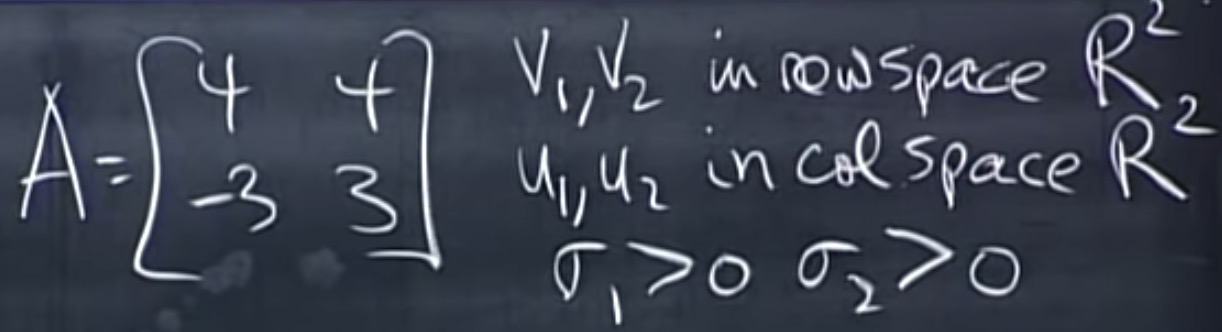 A = [4 4
-3 3]
V₁, V₂ in rowspace R²
u₁, u₂ in col. space R²
σ₁ > 0 σ₂ > 0